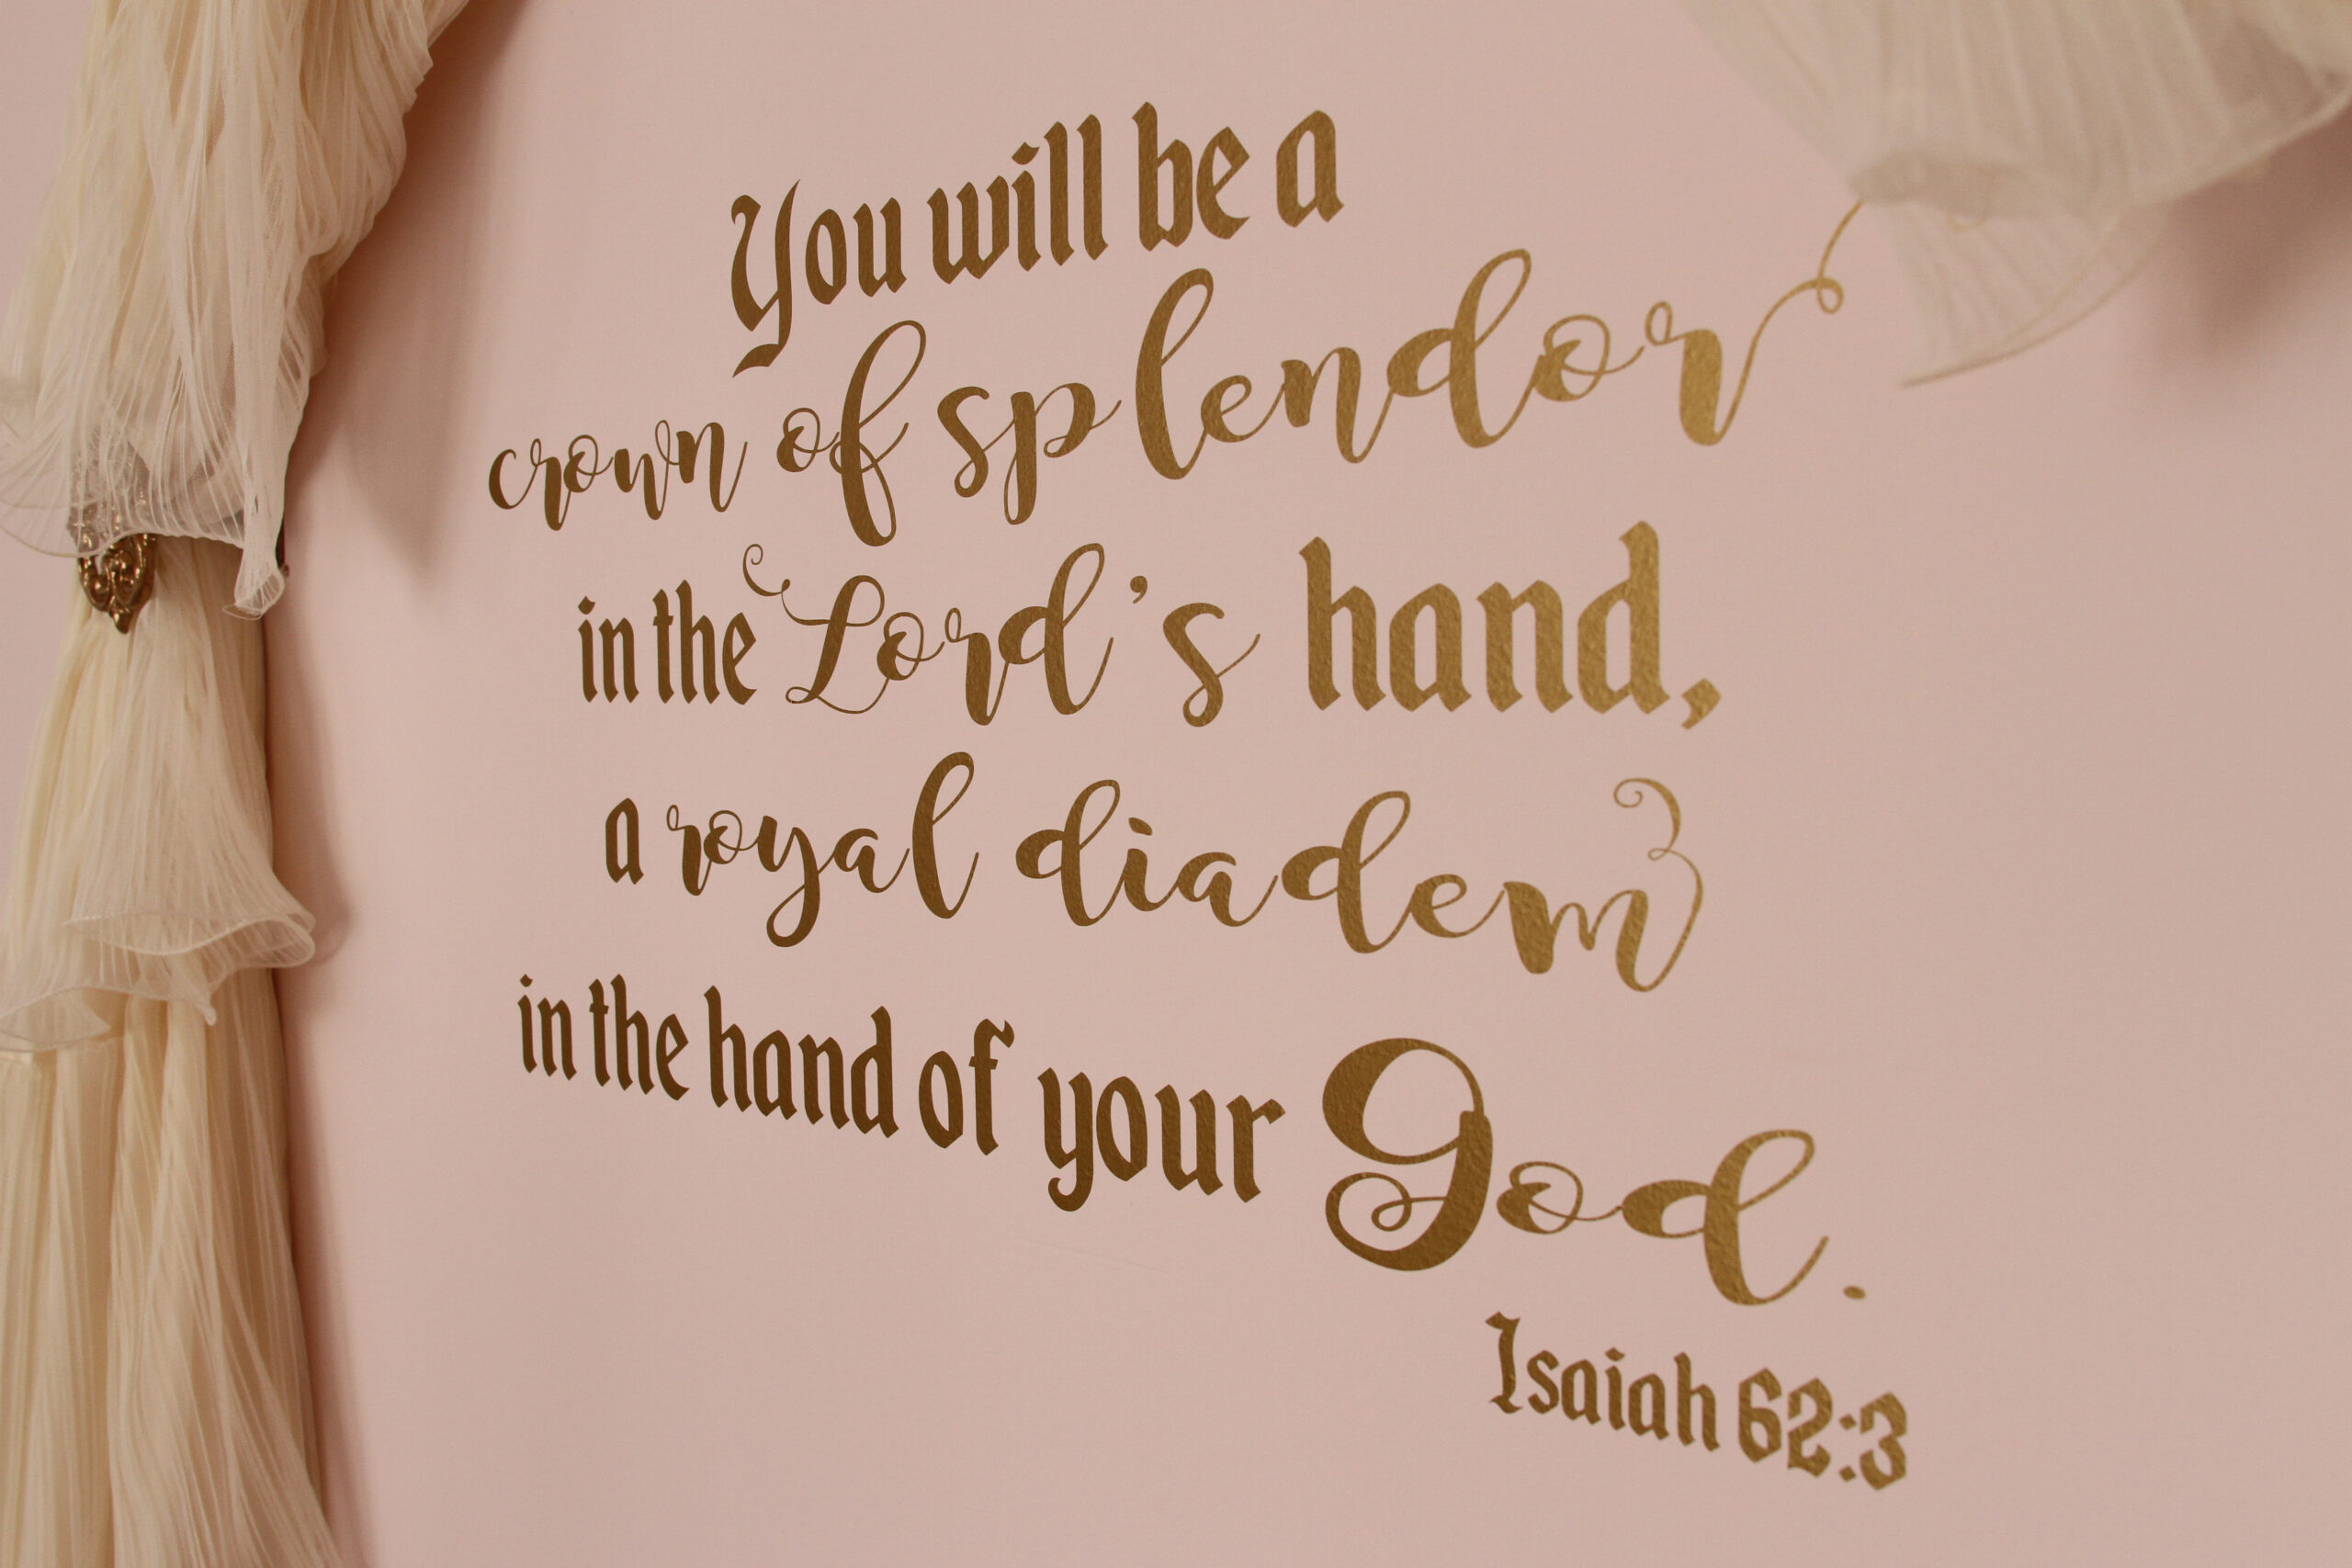 You will be a
crown of splendor
in the Lord's hand,
a royal diadem
in the hand of your God.
Isaiah 62:3